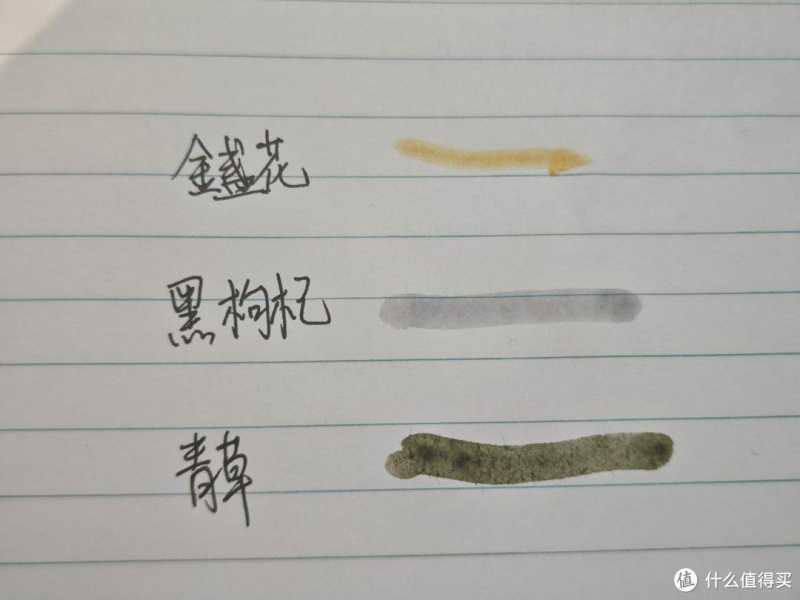 金盏花
黑枸杞
青草
值 什么值得买